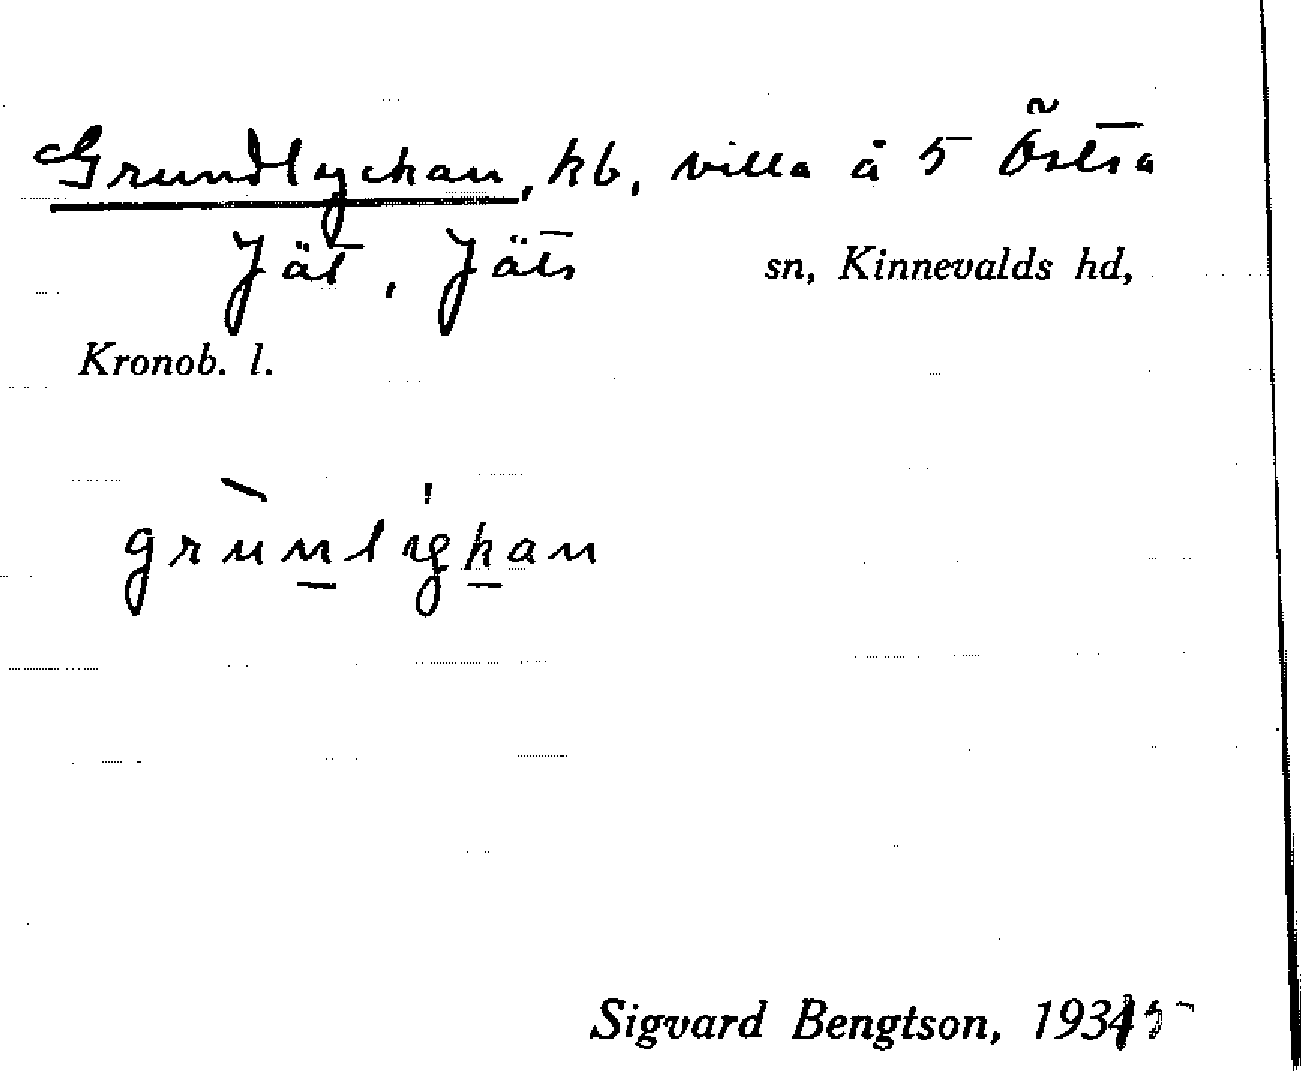 Grundlyckan, hb, villa å 5 Östra
Jät, Jäts sn, Kinnevalds hd,
Kronob. l.
grùnlyckan
Sigvard Bengtson, 1935